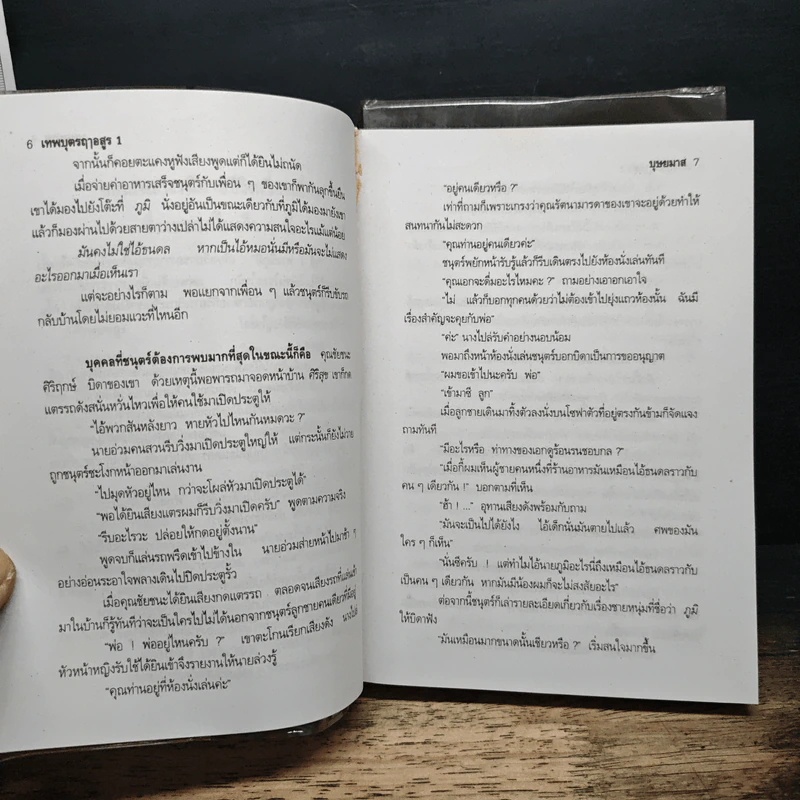 6 เทพบุตรฤาอสูร 1
จากนั้นก็คอยตะแคงหูฟังเสียงพูดแต่ก็ได้ยินไม่ถนัด
เมื่อจ่ายค่าอาหารเสร็จชนุตร์กับเพื่อน ๆ ของเขาก็พากันลุกขึ้นยืน
เขาได้มองไปยังโต๊ะที่ ภูมิ นั่งอยู่อันเป็นขณะเดียวกับที่ภูมิได้มองมายังเขา
แล้วก็มองผ่านไปด้วยสายตาว่างเปล่าไม่ได้แสดงความสนใจอะไรแม้แต่น้อย
มันคงไม่ใช่ไอ้ธนดล หากเป็นไอ้หมอนั่นมีหรือมันจะไม่แสดง
อะไรออกมาเมื่อเห็นเรา
แต่จะอย่างไรก็ตาม พอแยกจากเพื่อน ๆ แล้วชนุตร์ก็รีบขับรถ
กลับบ้านโดยไม่ยอมแวะที่ไหนอีก
บุคคลที่ชนุตร์ต้องการพบมากที่สุดในขณะนี้ก็คือ คุณชัยชนะ
ศิริฤกษ์ บิดาของเขา ด้วยเหตุนี้พอพารถมาจอดหน้าบ้าน ศิริสุข เขาก็กด
แตรรถดังสนั่นหวั่นไหวเพื่อให้คนใช้มาเปิดประตูให้
“ไอ้พวกสันหลังยาว หายหัวไปไหนกันหมดวะ ?”
นายอ่วมคนสวนรีบวิ่งมาเปิดประตูใหญ่ให้ แต่กระนั้นก็ยังไม่วาย
ถูกชนุตร์ชะโงกหน้าออกมาเล่นงาน
“ไปมุดหัวอยู่ไหน กว่าจะโผล่หัวมาเปิดประตูได้”
“พอได้ยินเสียงแตรผมก็รีบวิ่งมาเปิดครับ” พูดตามความจริง
“รีบอะไรวะ ปล่อยให้กดอยู่ตั้งนาน”
พูดจบก็แล่นรถพรืดเข้าไปข้างใน นายอ่วมส่ายหน้าไปมาช้า ๆ
อย่างอ่อนระอาใจพลางเดินไปปิดประตูรั้ว
เมื่อคุณชัยชนะได้ยินเสียงกดแตรรถ ตลอดจนเสียงรถที่แล่นเข้า
มาในบ้านก็รู้ทันทีว่าจะเป็นใครไปไม่ได้นอกจากชนุตร์ลูกชายคนเดียวที่มีอยู่
“พ่อ ! พ่ออยู่ไหนครับ ?” เขาตะโกนเรียกเสียงดัง
หัวหน้าหญิงรับใช้ได้ยินเข้าจึงรายงานให้นายล่วงรู้
“คุณท่านอยู่ที่ห้องนั่งเล่นค่ะ”
บุษยมาส 7
“อยู่คนเดียวหรือ ?”
เท่าที่ถามก็เพราะเกรงว่าคุณรัตนามารดาของเขาจะอยู่ด้วยทำให้
สนทนากันไม่สะดวก
“คุณท่านอยู่คนเดียวค่ะ”
ชนุตร์พยักหน้ารับรู้แล้วก็รีบเดินตรงไปยังห้องนั่งเล่นทันที
“คุณเอกจะดื่มอะไรไหมคะ ?” ถามอย่างเอาอกเอาใจ
“ไม่ แล้วก็บอกทุกคนด้วยว่าไม่ต้องเข้าไปยุ่งแถวห้องนั้น ฉันมี
เรื่องสำคัญจะคุยกับพ่อ”
“ค่ะ” นางไปล่รับคำอย่างนอบน้อม
พอมาถึงหน้าห้องนั่งเล่นชนุตร์บอกบิดาเป็นการขออนุญาต
“ผมขอเข้าไปนะครับ พ่อ”
“เข้ามาซี ลูก”
เมื่อลูกชายเดินมาทิ้งตัวลงนั่งบนโซฟาตัวที่อยู่ตรงกันข้ามก็จัดแจง
ถามทันที
“มีอะไรหรือ ท่าทางของเอกดูร้อนรนชอบกล ?”
“เมื่อกี้ผมเห็นผู้ชายคนหนึ่งที่ร้านอาหารมันเหมือนไอ้ธนดลราวกับ
คน ๆ เดียวกัน !” บอกตามที่เห็น
“ฮ้า ! ...” อุทานเสียงดังพร้อมกับถาม
“มันจะเป็นไปได้ยังไง ไอ้เด็กนั่นมันตายไปแล้ว ศพของมัน
ใคร ๆ ก็เห็น”
“นั่นซีครับ ! แต่ทำไมไอ้นายภูมิอะไรนี่ถึงเหมือนไอ้ธนดลราวกับ
เป็นคน ๆ เดียวกัน หากมันมีน้องผมก็จะไม่สงสัยอะไร”
ต่อจากนี้ชนุตร์ก็เล่ารายละเอียดเกี่ยวกับเรื่องชายหนุ่มที่ชื่อว่า ภูมิ
ให้บิดาฟัง
“มันเหมือนมากขนาดนั้นเชียวหรือ ?” เริ่มสนใจมากขึ้น